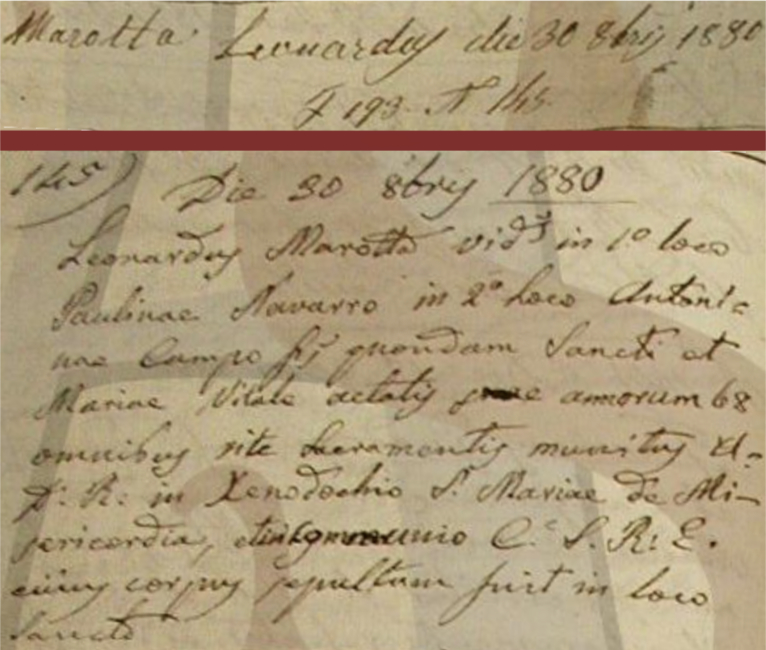 Marotta Leonardus die 30 8bris 1880
F 193 N 145
145) Die 30 8bris 1880
Leonardus Marotta vid.s in 1o loco
Paulinae Navarro in 2o loco Antoni-
nae Campo fs quondam Sancti et
Mariae Vitale aetatis suae annorum 68
omnibus rite Sacramentis munitus A.
D. R. in Xenodochio S. Mariae de Mi-
sericordia, C.e S. R. E.
cuius corpus sepultum fuit in loco
Sancto